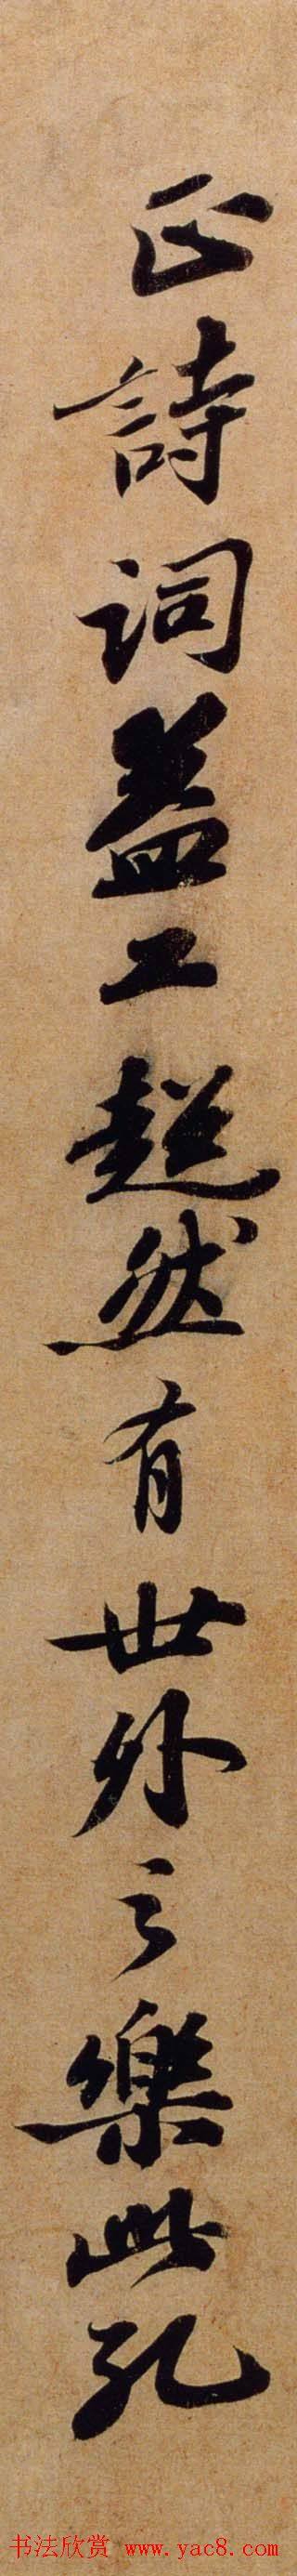 正詩詞益工超然有世外之樂此孔
书法欣赏 www.yac8.com